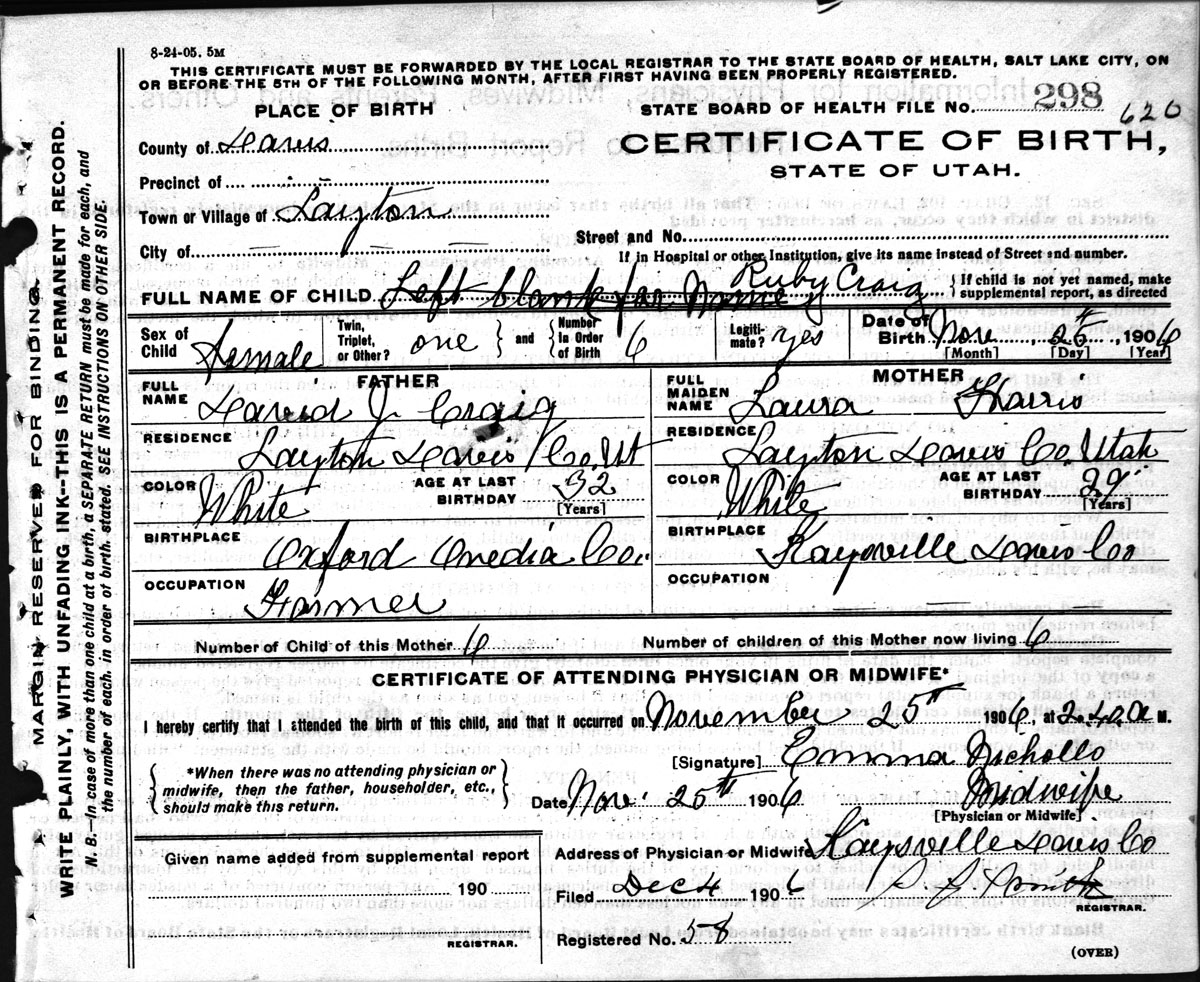 8-24-05. 5M
THIS CERTIFICATE MUST BE FORWARDED BY THE LOCAL REGISTRAR TO THE STATE BOARD OF HEALTH, SALT LAKE CITY, ON
OR BEFORE THE 5TH OF THE FOLLOWING MONTH, AFTER FIRST HAVING BEEN PROPERLY REGISTERED.
PLACE OF BIRTH
STATE BOARD OF HEALTH FILE No. 298 620
County of Davis
CERTIFICATE OF BIRTH,
STATE OF UTAH.
Precinct of
Town or Village of Layton
City of — — — —
Street and No.
If in Hospital or other Institution, give its name instead of Street and number.
FULL NAME OF CHILD Left blank for Name Ruby Craig { If child is not yet named, make supplemental report, as directed
Sex of Child Female Twin, Triplet, or Other? one } and { Number In Order of Birth 6 Legitimate? yes Date of Birth Nov. 25th 1906
[Month] [Day] [Year]
FATHER
FULL NAME David J. Craig
RESIDENCE Layton Davis Co. Ut
COLOR White AGE AT LAST BIRTHDAY 32 [Years]
BIRTHPLACE Oxford Onedia Co.
OCCUPATION Farmer
MOTHER
FULL MAIDEN NAME Laura Harris
RESIDENCE Layton Davis Co. Utah
COLOR White AGE AT LAST BIRTHDAY 29 [Years]
BIRTHPLACE Kaysville Davis Co
OCCUPATION — —
Number of Child of this Mother 6 Number of children of this Mother now living 6
CERTIFICATE OF ATTENDING PHYSICIAN OR MIDWIFE*
I hereby certify that I attended the birth of this child, and that it occurred on November 25th 1906, at 2.40 A M.
{ *When there was no attending physician or midwife, then the father, householder, etc., should make this return. }
[Signature] Emma Nichollo
Date Nov. 25th 1906 Midwife
[Physician or Midwife]
Given name added from supplemental report
190
REGISTRAR.
Address of Physician or Midwife Kaysville Davis Co
Filed Dec 4 1906 Smith
REGISTRAR.
Registered No. 58
(OVER)
MARGIN RESERVED FOR BINDING.
WRITE PLAINLY, WITH UNFADING INK--THIS IS A PERMANENT RECORD.
N. B.—In case of more than one child at a birth, a SEPARATE RETURN must be made for each, and
the number of each, in order of birth, stated. SEE INSTRUCTIONS ON OTHER SIDE.